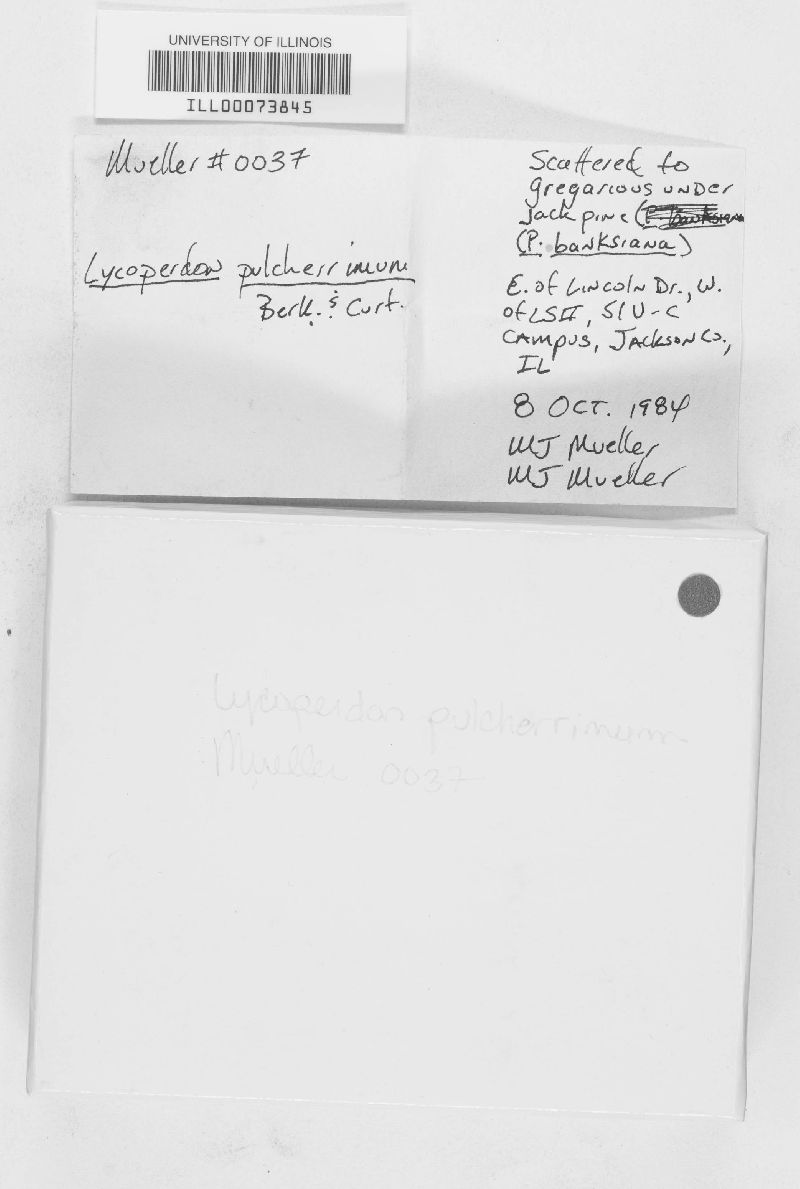 UNIVERSITY OF ILLINOIS
ILL00073845
Mueller # 0037
Lycoperdon pulcherrimum
Berk. & Curt.
Scattered to
gregarious under
Jack pine (P. banksiana
(P. banksiana)
E. of Lincoln Dr., W.
of LSII, SIU-C
Campus, Jackson Co.,
IL
8 Oct. 1984
MJ Mueller
MJ Mueller
Lycoperdon pulcherrimum
Mueller 0037